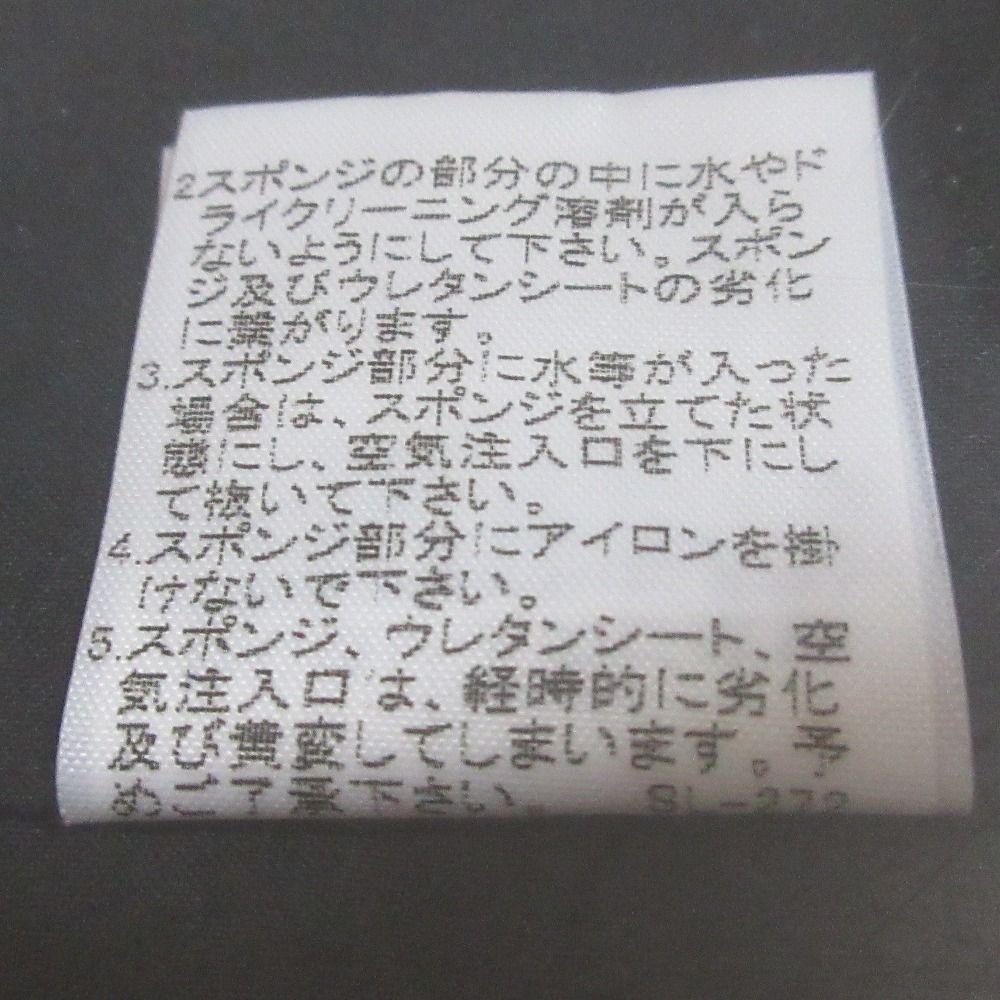 2スポンジの部分の中に水やド
ライクリーニング溶剤が入ら
ないようにして下さい。スポン
ジ及びウレタンシートの劣化
に繋がります。
3.スポンジ部分に水等が入った
場合は、スポンジを立てた状
態にし、空気注入口を下にし
て抜いて下さい。
4.スポンジ部分にアイロンを掛
けないで下さい。
5.スポンジ、ウレタンシート、空
気注入口は、経時的に劣化
及び黄変してしまいます。予
めご了承下さい。 SL-272